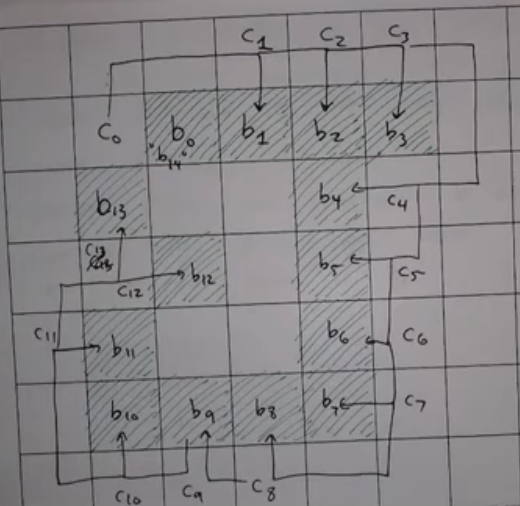 C1 C2 C3
C0 b0 b1 b2 b3
"b14"
b13 b4 C4
C13
b12 b5 C5
C12
C11 b11 b6 C6
b10 b9 b8 b7 C7
C10 C9 C8